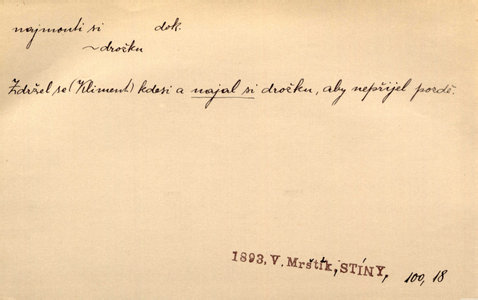 najmouti si dok.
~ drožku
Zdržel se (Kliment) kdesi a najal si drožku, aby nepřijel pozdě.
1893, V. Mrštík, STÍNY, 100, 18